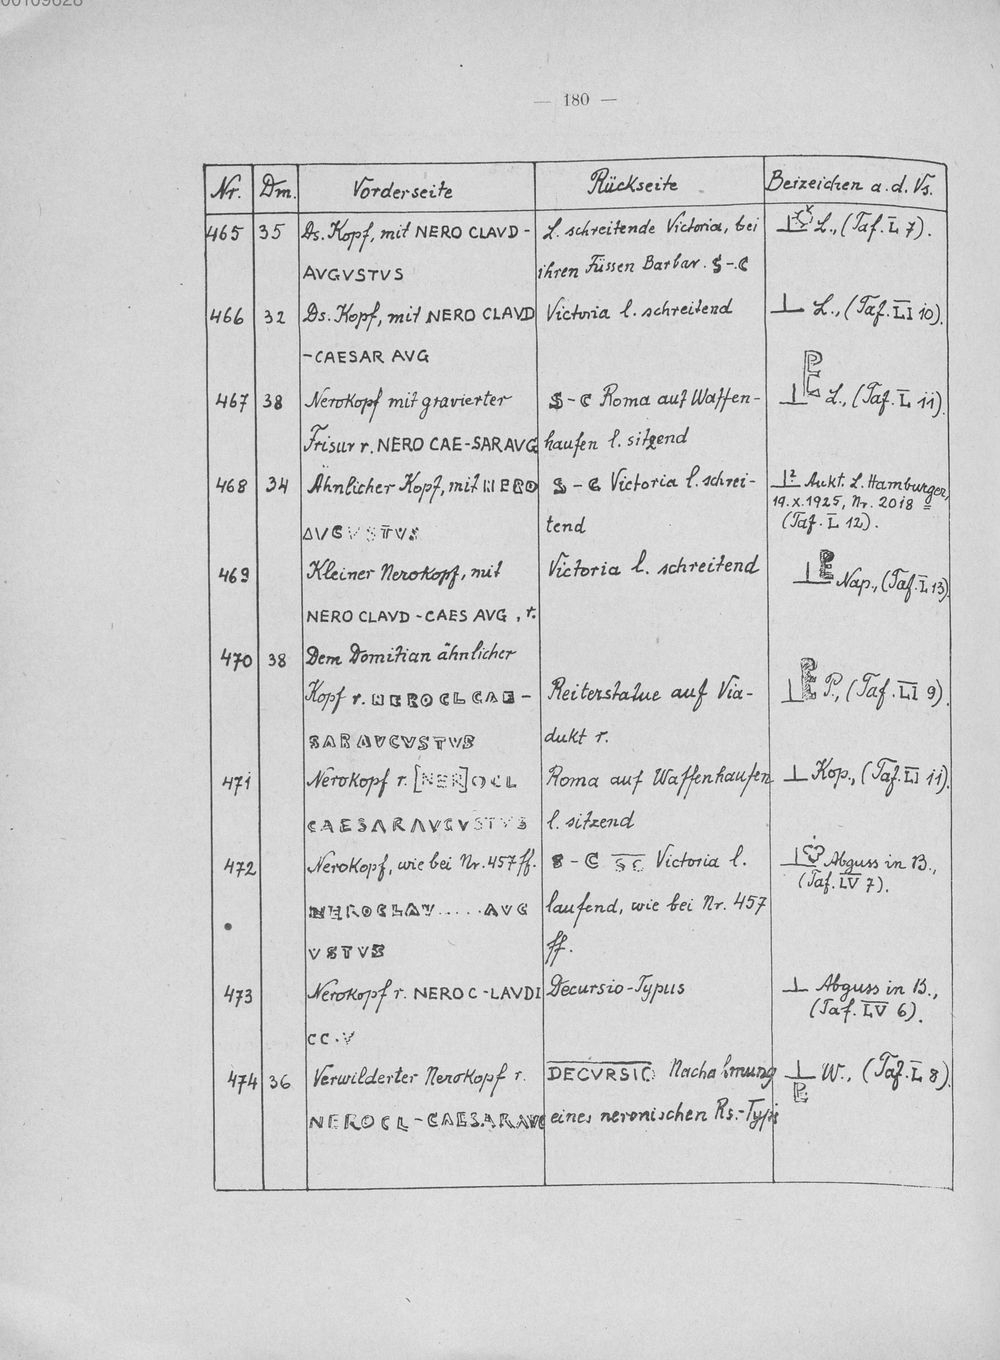 00109628
— 180 —
Nr. Dm. Vorderseite Rückseite Beizeichen a.d. Vs.
465 35 Ds. Kopf, mit NERO CLAVD - L. schreitende Victoria, bei L., (Taf. L 7).
AVGVSTVS ihren Füssen Barbar. S-C
466 32 Ds. Kopf, mit NERO CLAVD Victoria l. schreitend L., (Taf. LI 10).
-CAESAR AVG
467 38 Nerokopf mit gravierter S-C Roma auf Waffen- L., (Taf. L 11).
Frisur r. NERO CAE-SAR AVG haufen l. sitzend
468 34 Ähnlicher Kopf, mit NERO S-C Victoria l. schrei- Aukt. L. Hamburger,
19.X.1925, Nr. 2018 =
AVGVSTVS tend (Taf. L 12).
469 Kleiner Nerokopf, mit Victoria l. schreitend Nap., (Taf. L 13)
NERO CLAVD-CAES AVG, r.
470 38 Dem Domitian ähnlicher
Kopf r. NERO CL CAE- Reiterstatue auf Via- P., (Taf. LI 9).
SAR AVGVSTVS dukt r.
471 Nerokopf r. [NER]O CL Roma auf Waffenhaufen Kop., (Taf. LI 11).
CAESAR AVGVSTVS l. sitzend
472 Nerokopf, wie bei Nr. 457 ff. S-C SC Victoria l. Abguss in B.,
(Taf. LV 7).
NERO CLAV.....AVG laufend, wie bei Nr. 457
VSTVS ff.
473 Nerokopf r. NERO C-LAVDI Decursio-Typus Abguss in B.,
(Taf. LV 6).
CC.V
474 36 Verwilderter Nerokopf r. DECVRSIO Nachahmung W., (Taf. L 8).
NERO CL-CAESAR AVG eines neronischen Rs.-Typs